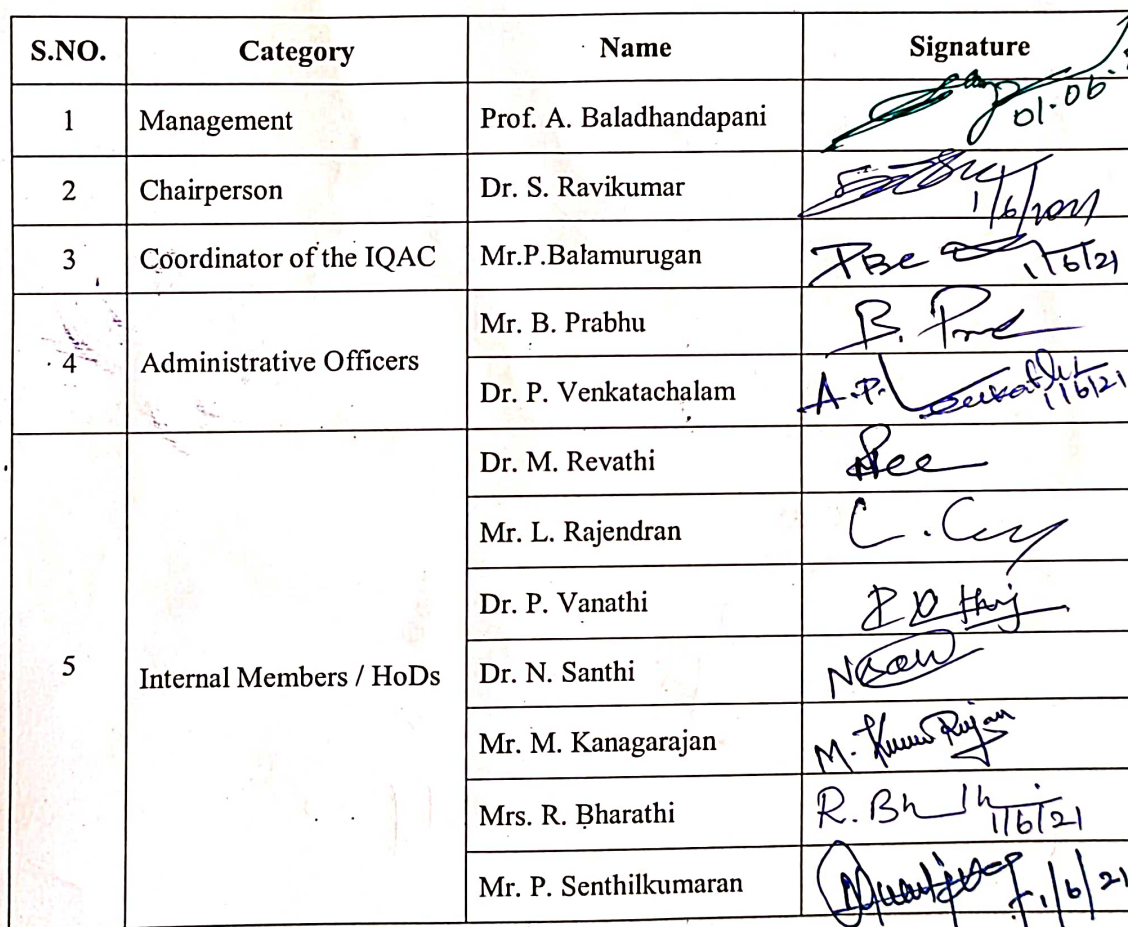 S.NO. Category Name Signature
1 Management Prof. A. Baladhandapani 01.06.
2 Chairperson Dr. S. Ravikumar 1/6/2021
3 Coordinator of the IQAC Mr.P.Balamurugan 1/6/21
4 Administrative Officers Mr. B. Prabhu B.
Dr. P. Venkatachalam A.P. 1/6/21
5 Internal Members / HoDs Dr. M. Revathi
Mr. L. Rajendran
Dr. P. Vanathi
Dr. N. Santhi
Mr. M. Kanagarajan M.
Mrs. R. Bharathi R. 1/6/21
Mr. P. Senthilkumaran 1/6/21